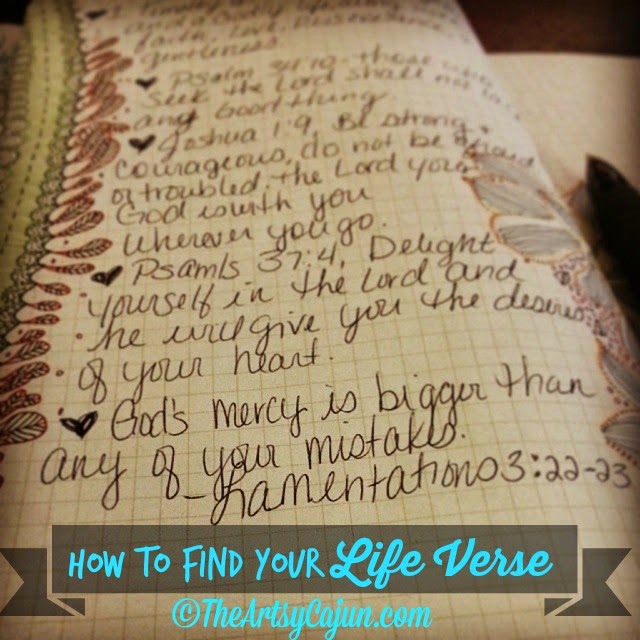 faith, Love, Perseverance
gentleness.
Psalm 34:10 - those who
Seek the Lord shall not
any Good thing.
Joshua 1:9 Be strong &
courageous, do not be afraid
or troubled, the Lord your
God is with you
wherever you go.
Psamls 37:4, Delight
yourself in the Lord and
he will give you the desires
of your heart.
God's mercy is bigger than
any of your mistakes.
- Lamentations 3:22-23
How to Find Your Life Verse
©TheArtsyCajun.com